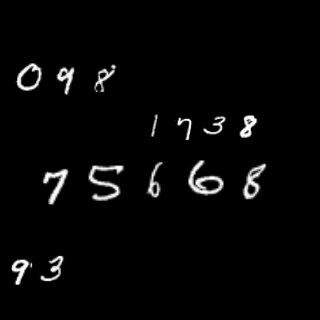 098
1738
75668
93